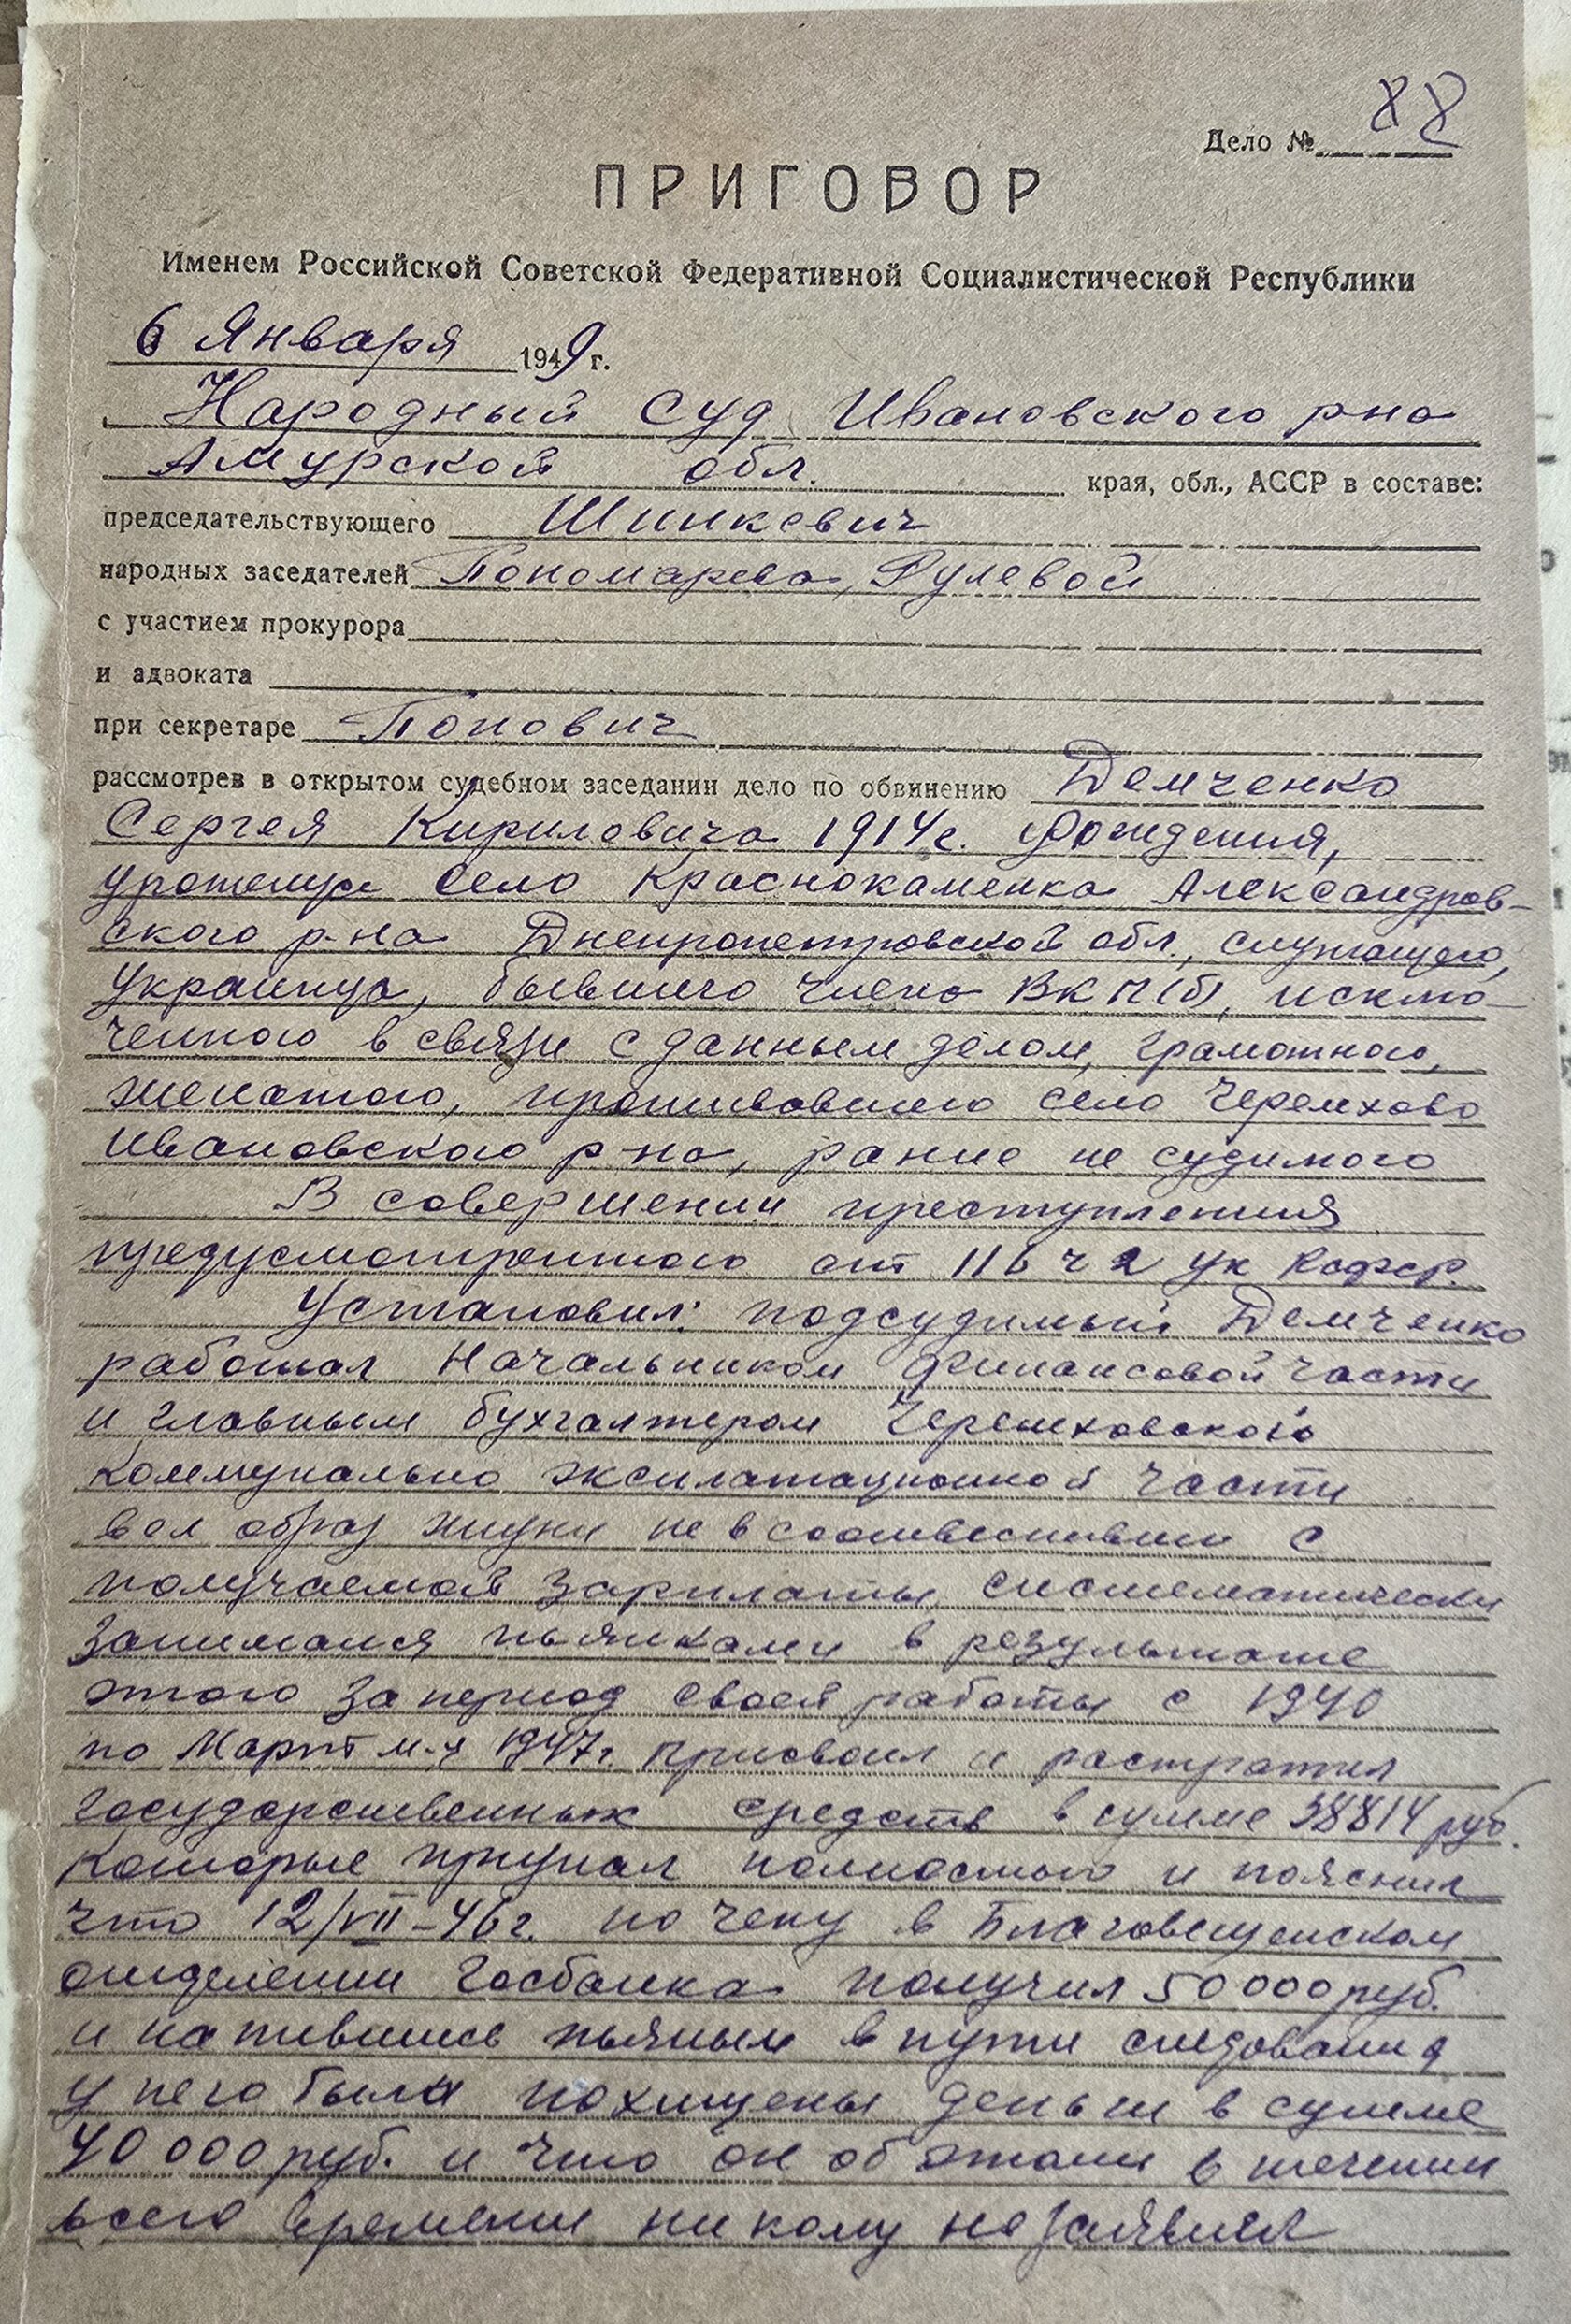 88
Дело №
ПРИГОВОР
Именем Российской Советской Федеративной Социалистической Республики
6 Января 1949 г.
Народный суд Ивановского р-на
Амурской обл. края, обл., АССР в составе:
председательствующего Шинкевич
народных заседателей Пономарева, Рулевой
с участием прокурора
и адвоката
при секретаре Попович
рассмотрев в открытом судебном заседании дело по обвинению Демченко
Сергея Кириловича 1914 г. рождения,
уроженца село Краснокаменка Александров-
ского р-на Днепропетровской обл., служащего,
украинца, бывшего члена ВКП(б), исклю-
ченного в связи с данным делом, грамотного,
женатого, проживавшего село Черемхово
Ивановского р-на, ранее не судимого
В совершении преступления
предусмотренного ст 116 ч 2 УК РСФСР.
Установил: подсудимый Демченко
работал Начальником финансовой части
и главным бухгалтером Черемховского
коммунально эксплатационной части
вел образ жизни не в соответствии с
получаемой зарплаты систематически
занимался пьянками в результате
этого за период своей работы с 1940
по Март м-ц 1947 г. присвоил и растратил
государственных средств в сумме 38814 руб.
которые признал полностью и пояснил
что 12/VII-46 г. по чеку в Благовещенском
отделении Госбанка получил 50000 руб.
и напившись пьяным в пути следования
у него были похищены деньги в сумме
40000 руб. и что он об этом в течении
всего времени никому не заявил